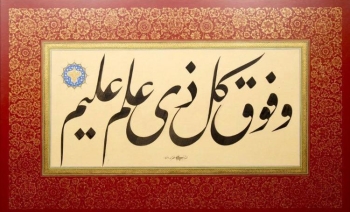 وفوق كل ذى علم عليم